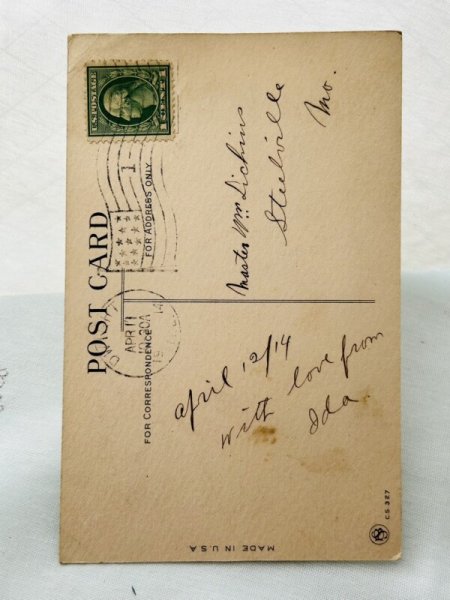 POST CARD
FOR CORRESPONDENCE
FOR ADDRESS ONLY
U.S. POSTAGE
1 CENT 1
1
APR 11
19
14
April 12/14
With love from
Ida
Master Wm Dickins
Steelville
Mo.
MADE IN U.S.A
C.S. 327